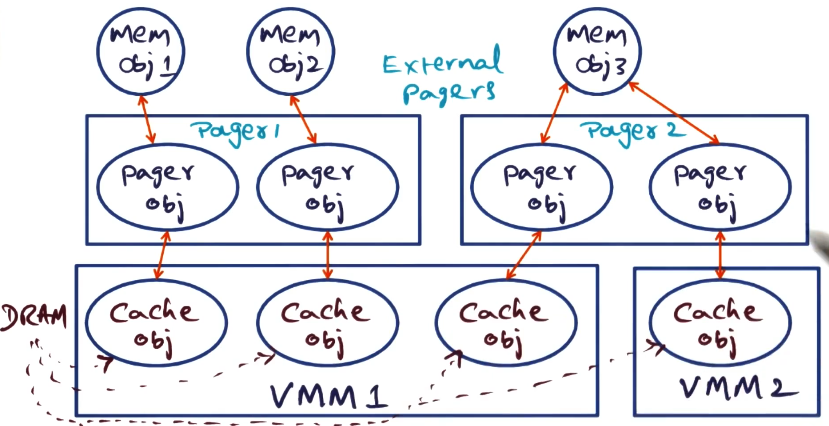 mem
obj1
mem
obj2
External
pagers
mem
obj3
Pager1
Pager 2
pager
obj
pager
obj
pager
obj
pager
obj
DRAM
Cache
obj
Cache
obj
Cache
obj
Cache
obj
VMM1
VMM2